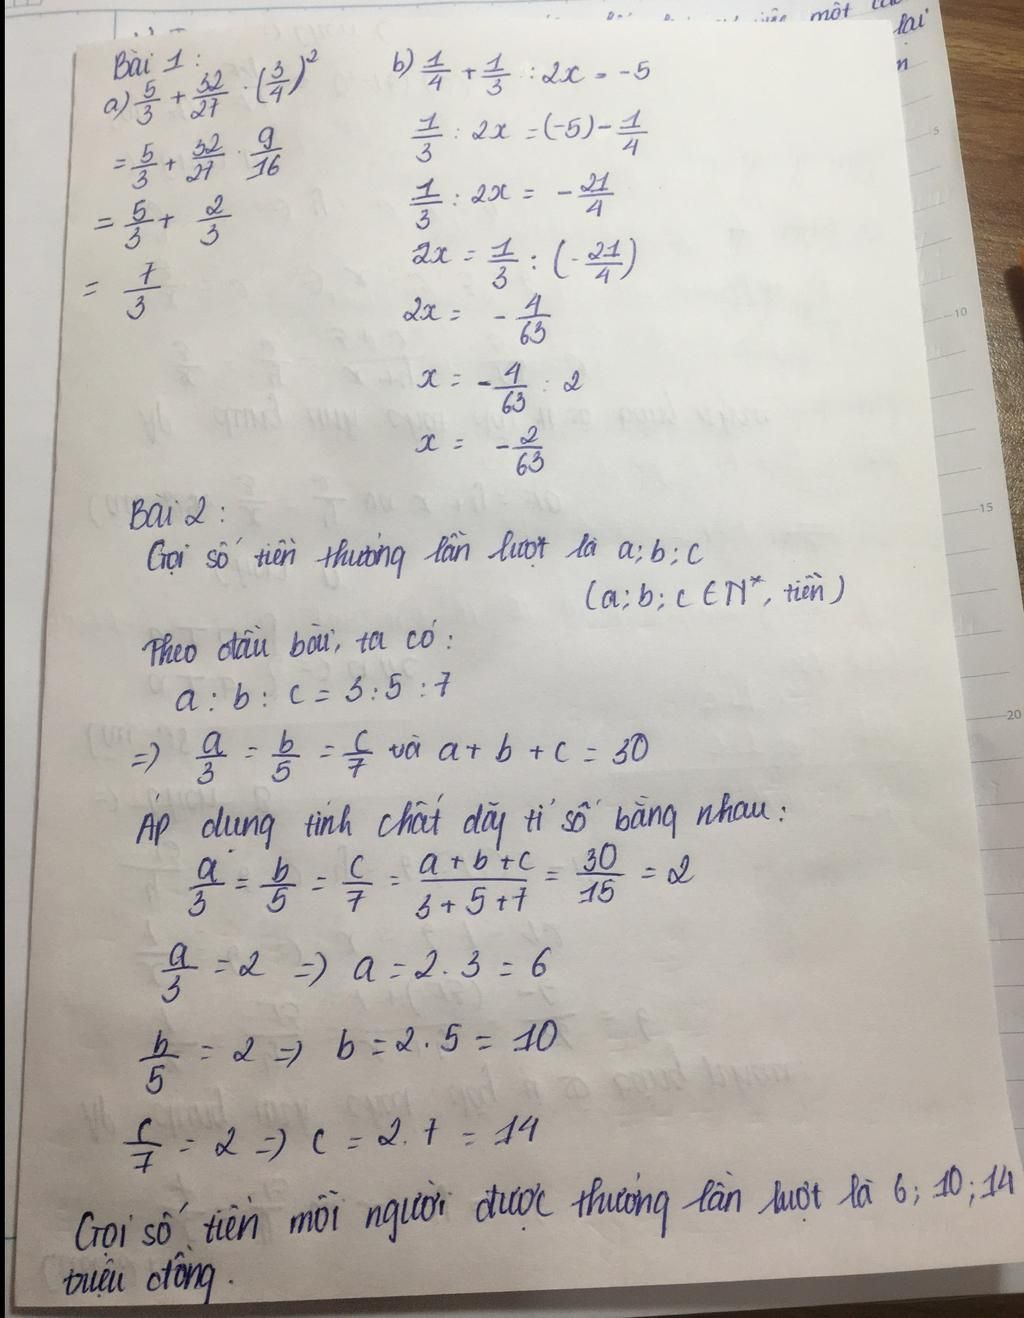 Bài 1:
a) 5/3 + 32/27 . (3/4)²
= 5/3 + 32/27 . 9/16
= 5/3 + 2/3
= 7/3
b) 1/4 + 1/3 : 2x = -5
1/3 : 2x = (-5) - 1/4
1/3 : 2x = - 21/4
2x = 1/3 : (- 21/4)
2x = - 4/63
x = - 4/63 : 2
x = - 2/63
Bài 2:
Gọi số tiền thưởng lần lượt là a; b; c
(a; b; c ∈ N*, tiền)
Theo đầu bài, ta có:
a : b : c = 3 : 5 : 7
=) a/3 = b/5 = c/7 và a + b + c = 30
Áp dụng tính chất dãy tỉ số bằng nhau:
a/3 = b/5 = c/7 = a + b + c/3 + 5 + 7 = 30/15 = 2
a/3 = 2 =) a = 2 . 3 = 6
b/5 = 2 =) b = 2 . 5 = 10
c/7 = 2 =) c = 2 . 7 = 14
Gọi số tiền mỗi người được thưởng lần lượt là 6; 10; 14
triệu đồng.
một
lại
5
10
15
20